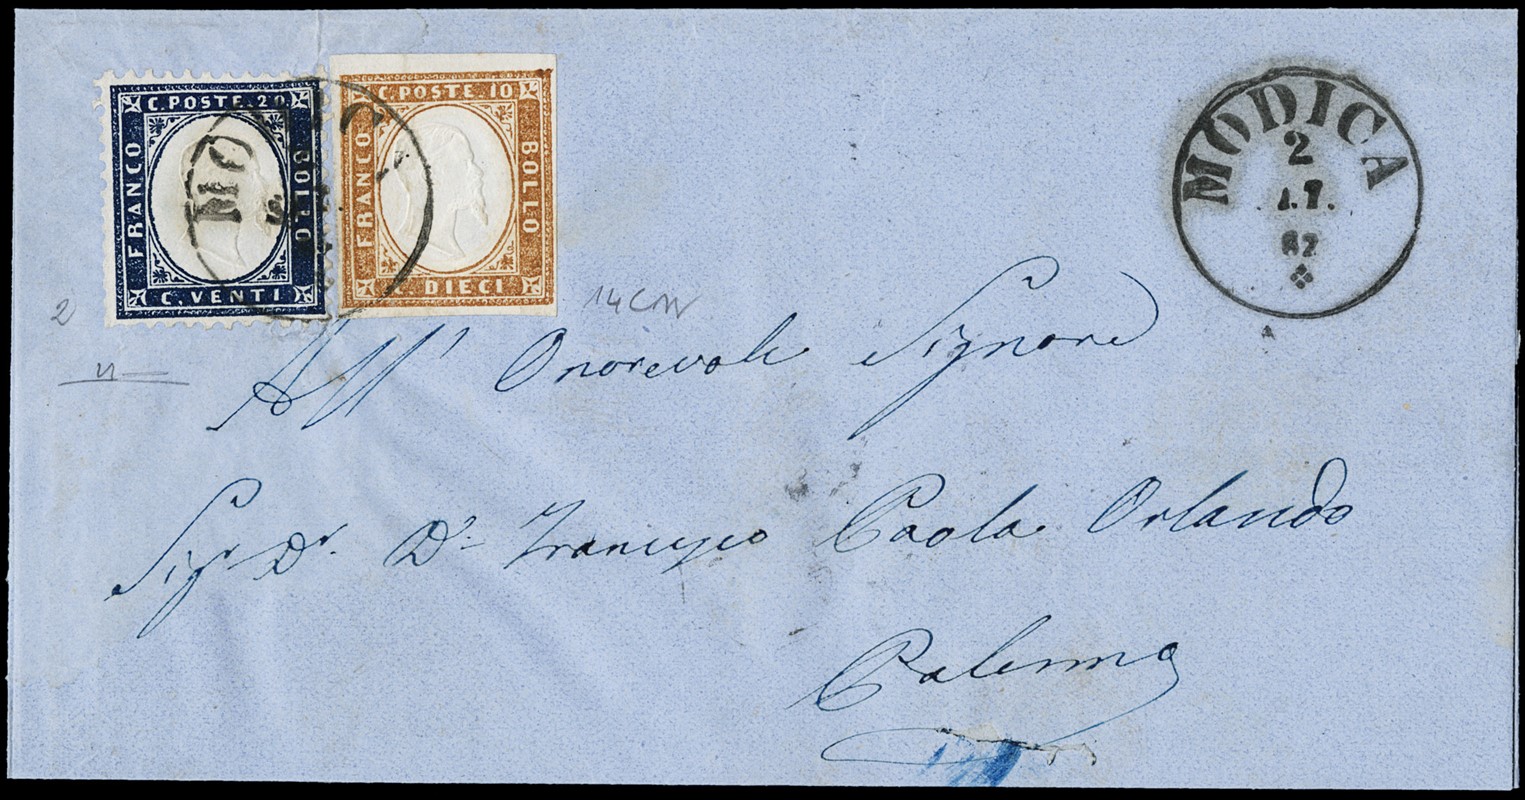 C. POSTE. 20
FRANCO
BOLLO
C. VENTI
C. POSTE 10
FRANCO
BOLLO
C. DIECI
MODICA
2
62
2
All' Onorevole Signore
Sigr Dr. Dn Francesco Paola Orlando
Palermo